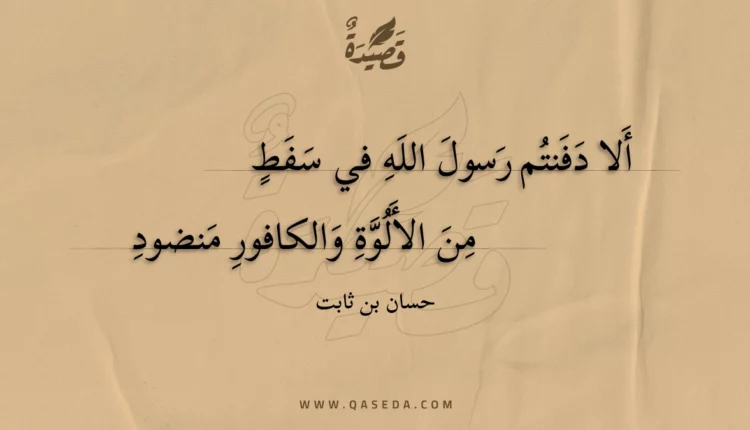 قَصِيْدَةٌ
أَلا دَفَنتُم رَسولَ اللَهِ في سَفَطٍ
مِنَ الأَلُوَّةِ وَالكافورِ مَنضودِ
حسان بن ثابت
WWW.QASEDA.COM